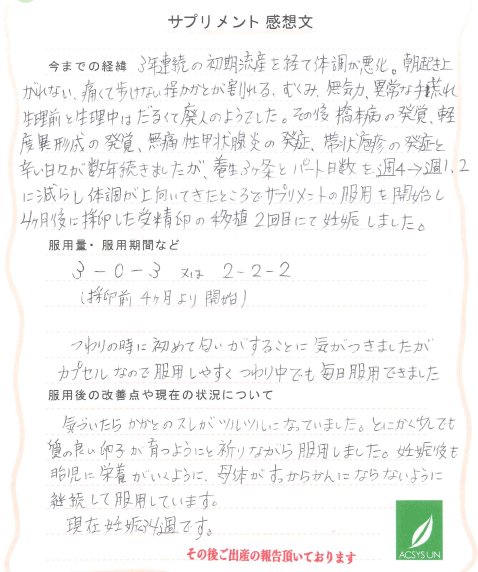 サプリメント 感想文
今までの経緯 3年連続の初期流産を経て体調が悪化。朝起き上
がれない、痛くて歩けない程かかとが割れる、むくみ、無気力、異常な手荒れ
生理前と生理中はだるくて廃人のようでした。その後 橋本病の発覚、軽
度異形成の発覚、無痛性甲状腺炎の発症、帯状疱疹の発症と
辛い日々が数年続きましたが、養生3ヶ条とパート日数を週4→週1,2
に減らし体調が上向いてきたところでサプリメントの服用を開始し
4ヶ月後に採卵した受精卵の移植2回目にて妊娠しました。
服用量・服用期間など
3-0-3 又は 2-2-2
(採卵前4ヶ月より開始)
つわりの時に初めて匂いがすることに気がつきましたが
カプセルなので服用しやすくつわり中でも毎日服用できました
服用後の改善点や現在の状況について
気づいたらかかとのスレがツルツルになっていました。とにかく少しでも
質の良い卵子が育つようにと祈りながら服用しました。妊娠後も
胎児に栄養がいくように、母体がすっからかんにならないように
継続して服用しています。
現在妊娠34週です。
その後ご出産の報告頂いております
ACSYSUN